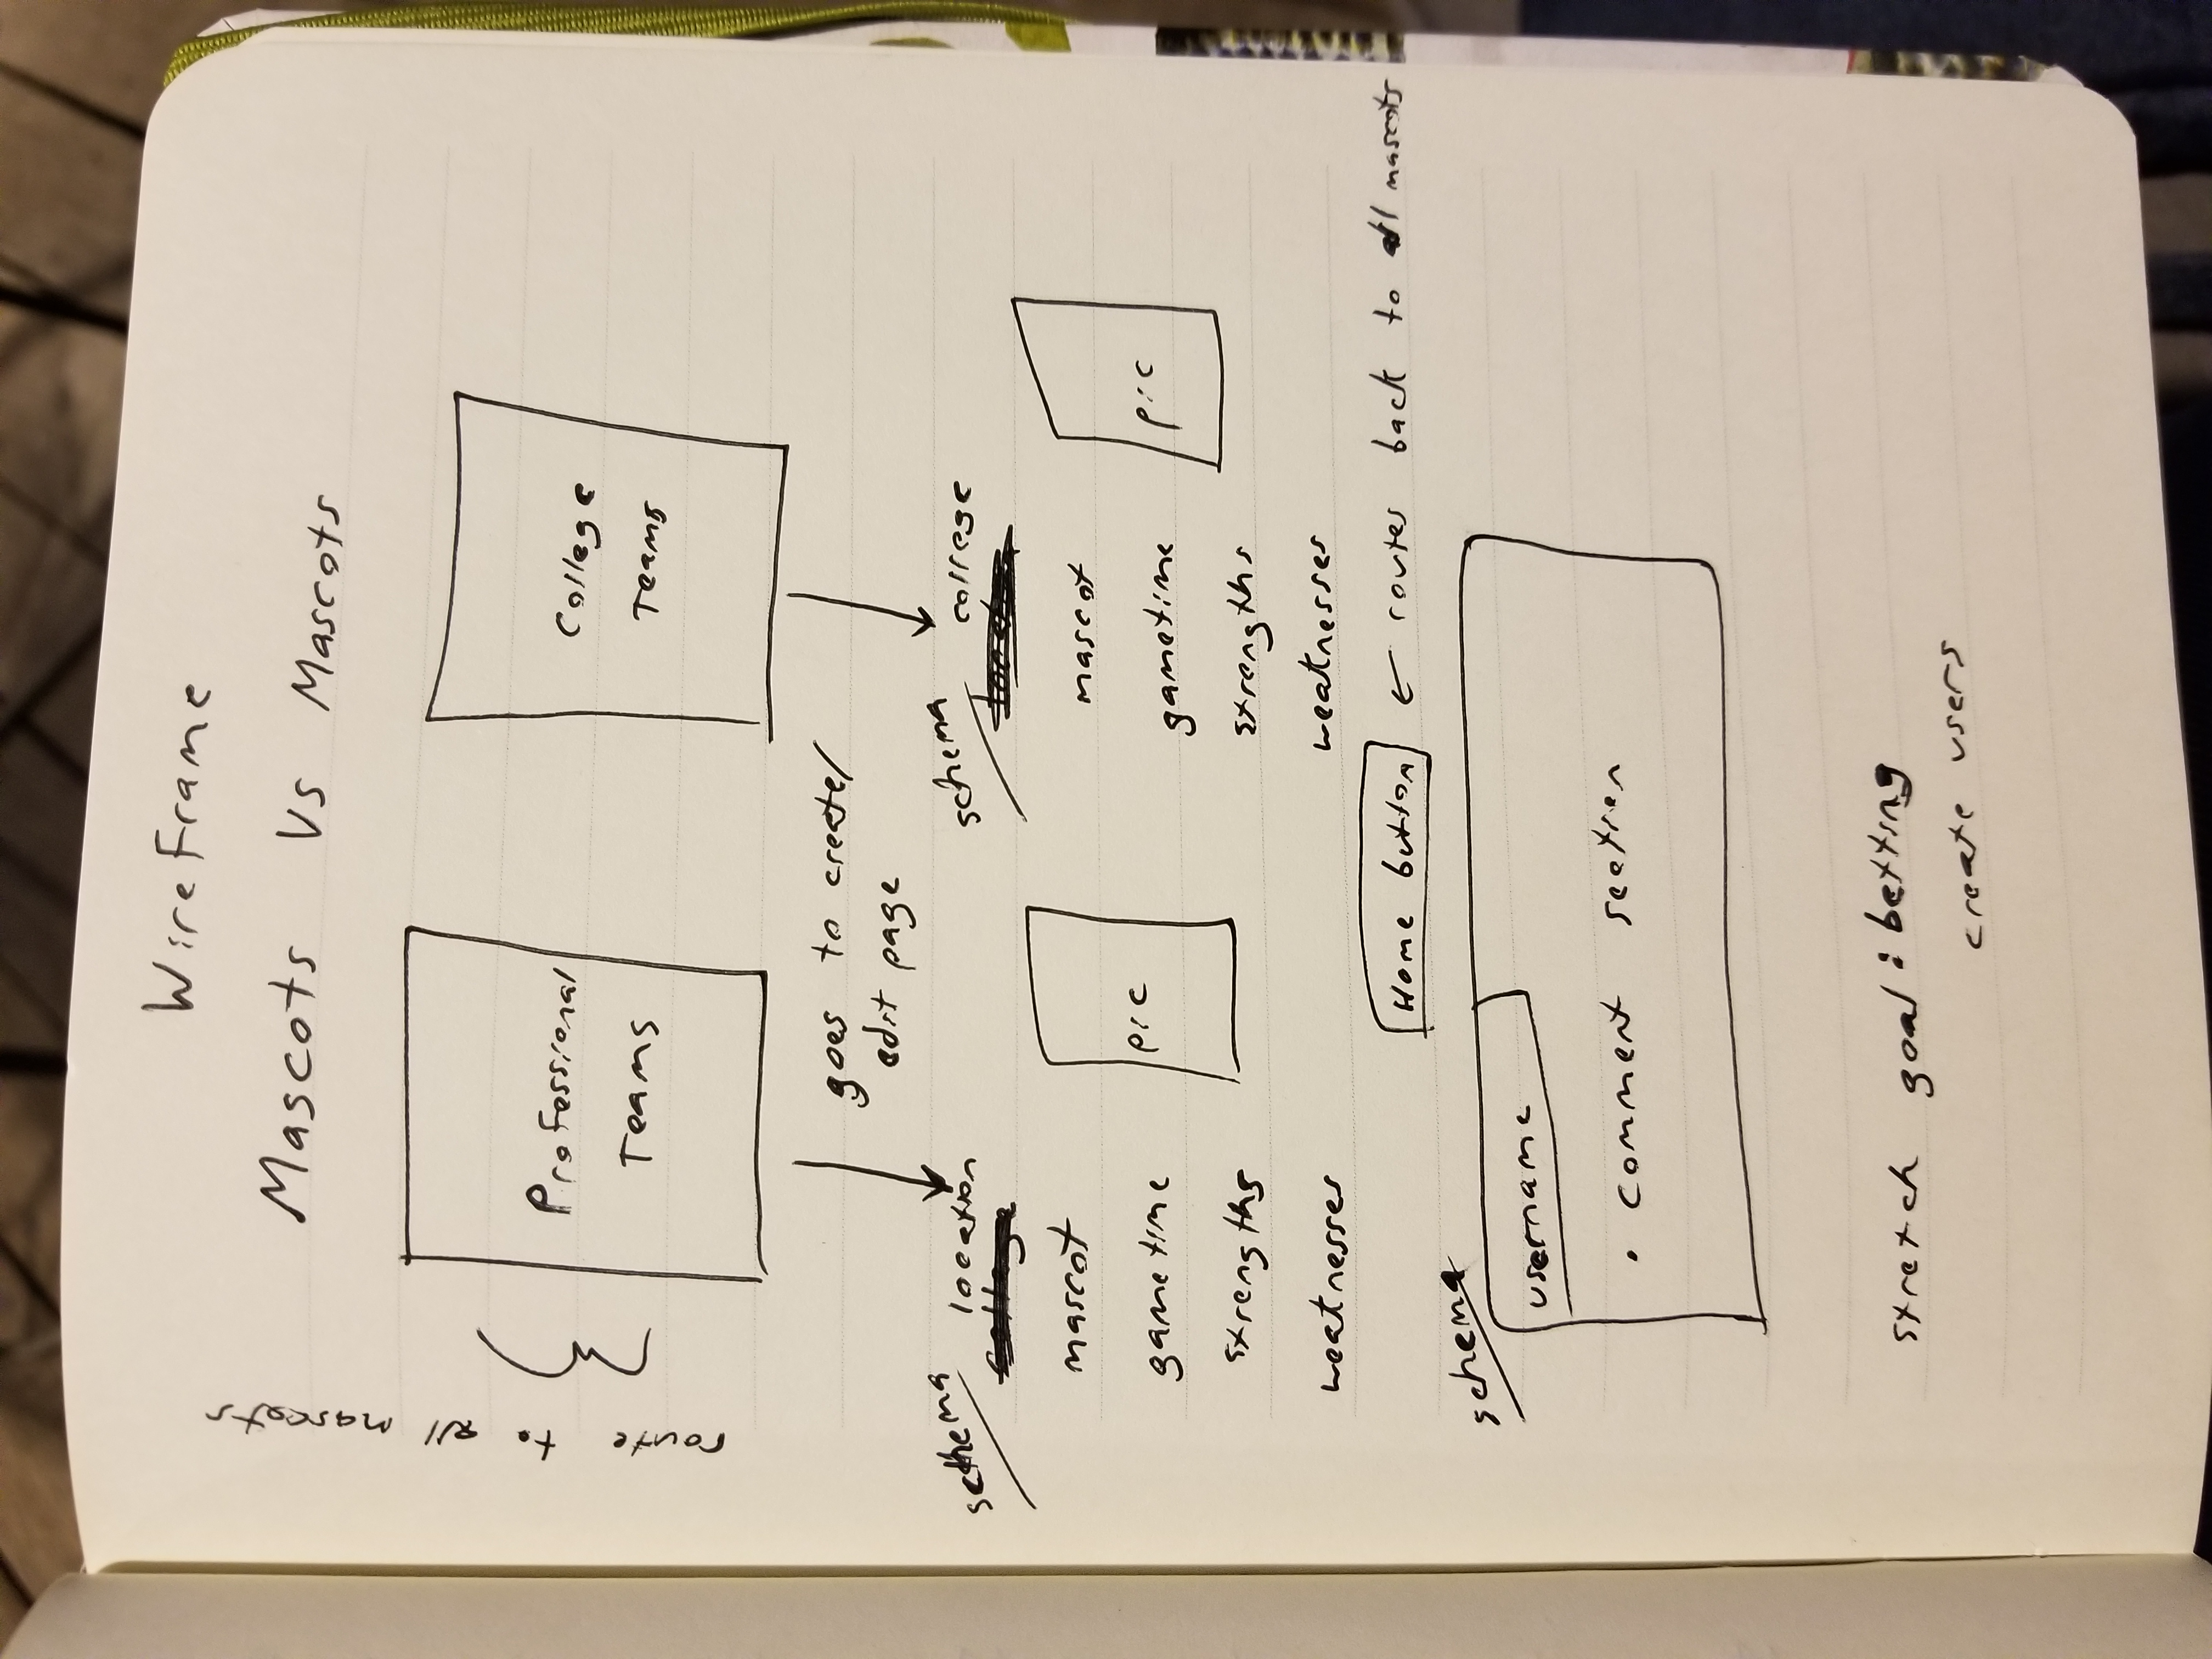 WireFrame
Mascots Vs Mascots
route to all mascots
Professional
Teams
College
Teams
goes to create/
edit page
schema
location
college
mascot
gametime
strengths
weaknesses
pic
schema
college
mascot
gametime
strengths
weaknesses
pic
Home button ← routes back to all mascots
schema
username
• comment section
stretch goal: betting
create users